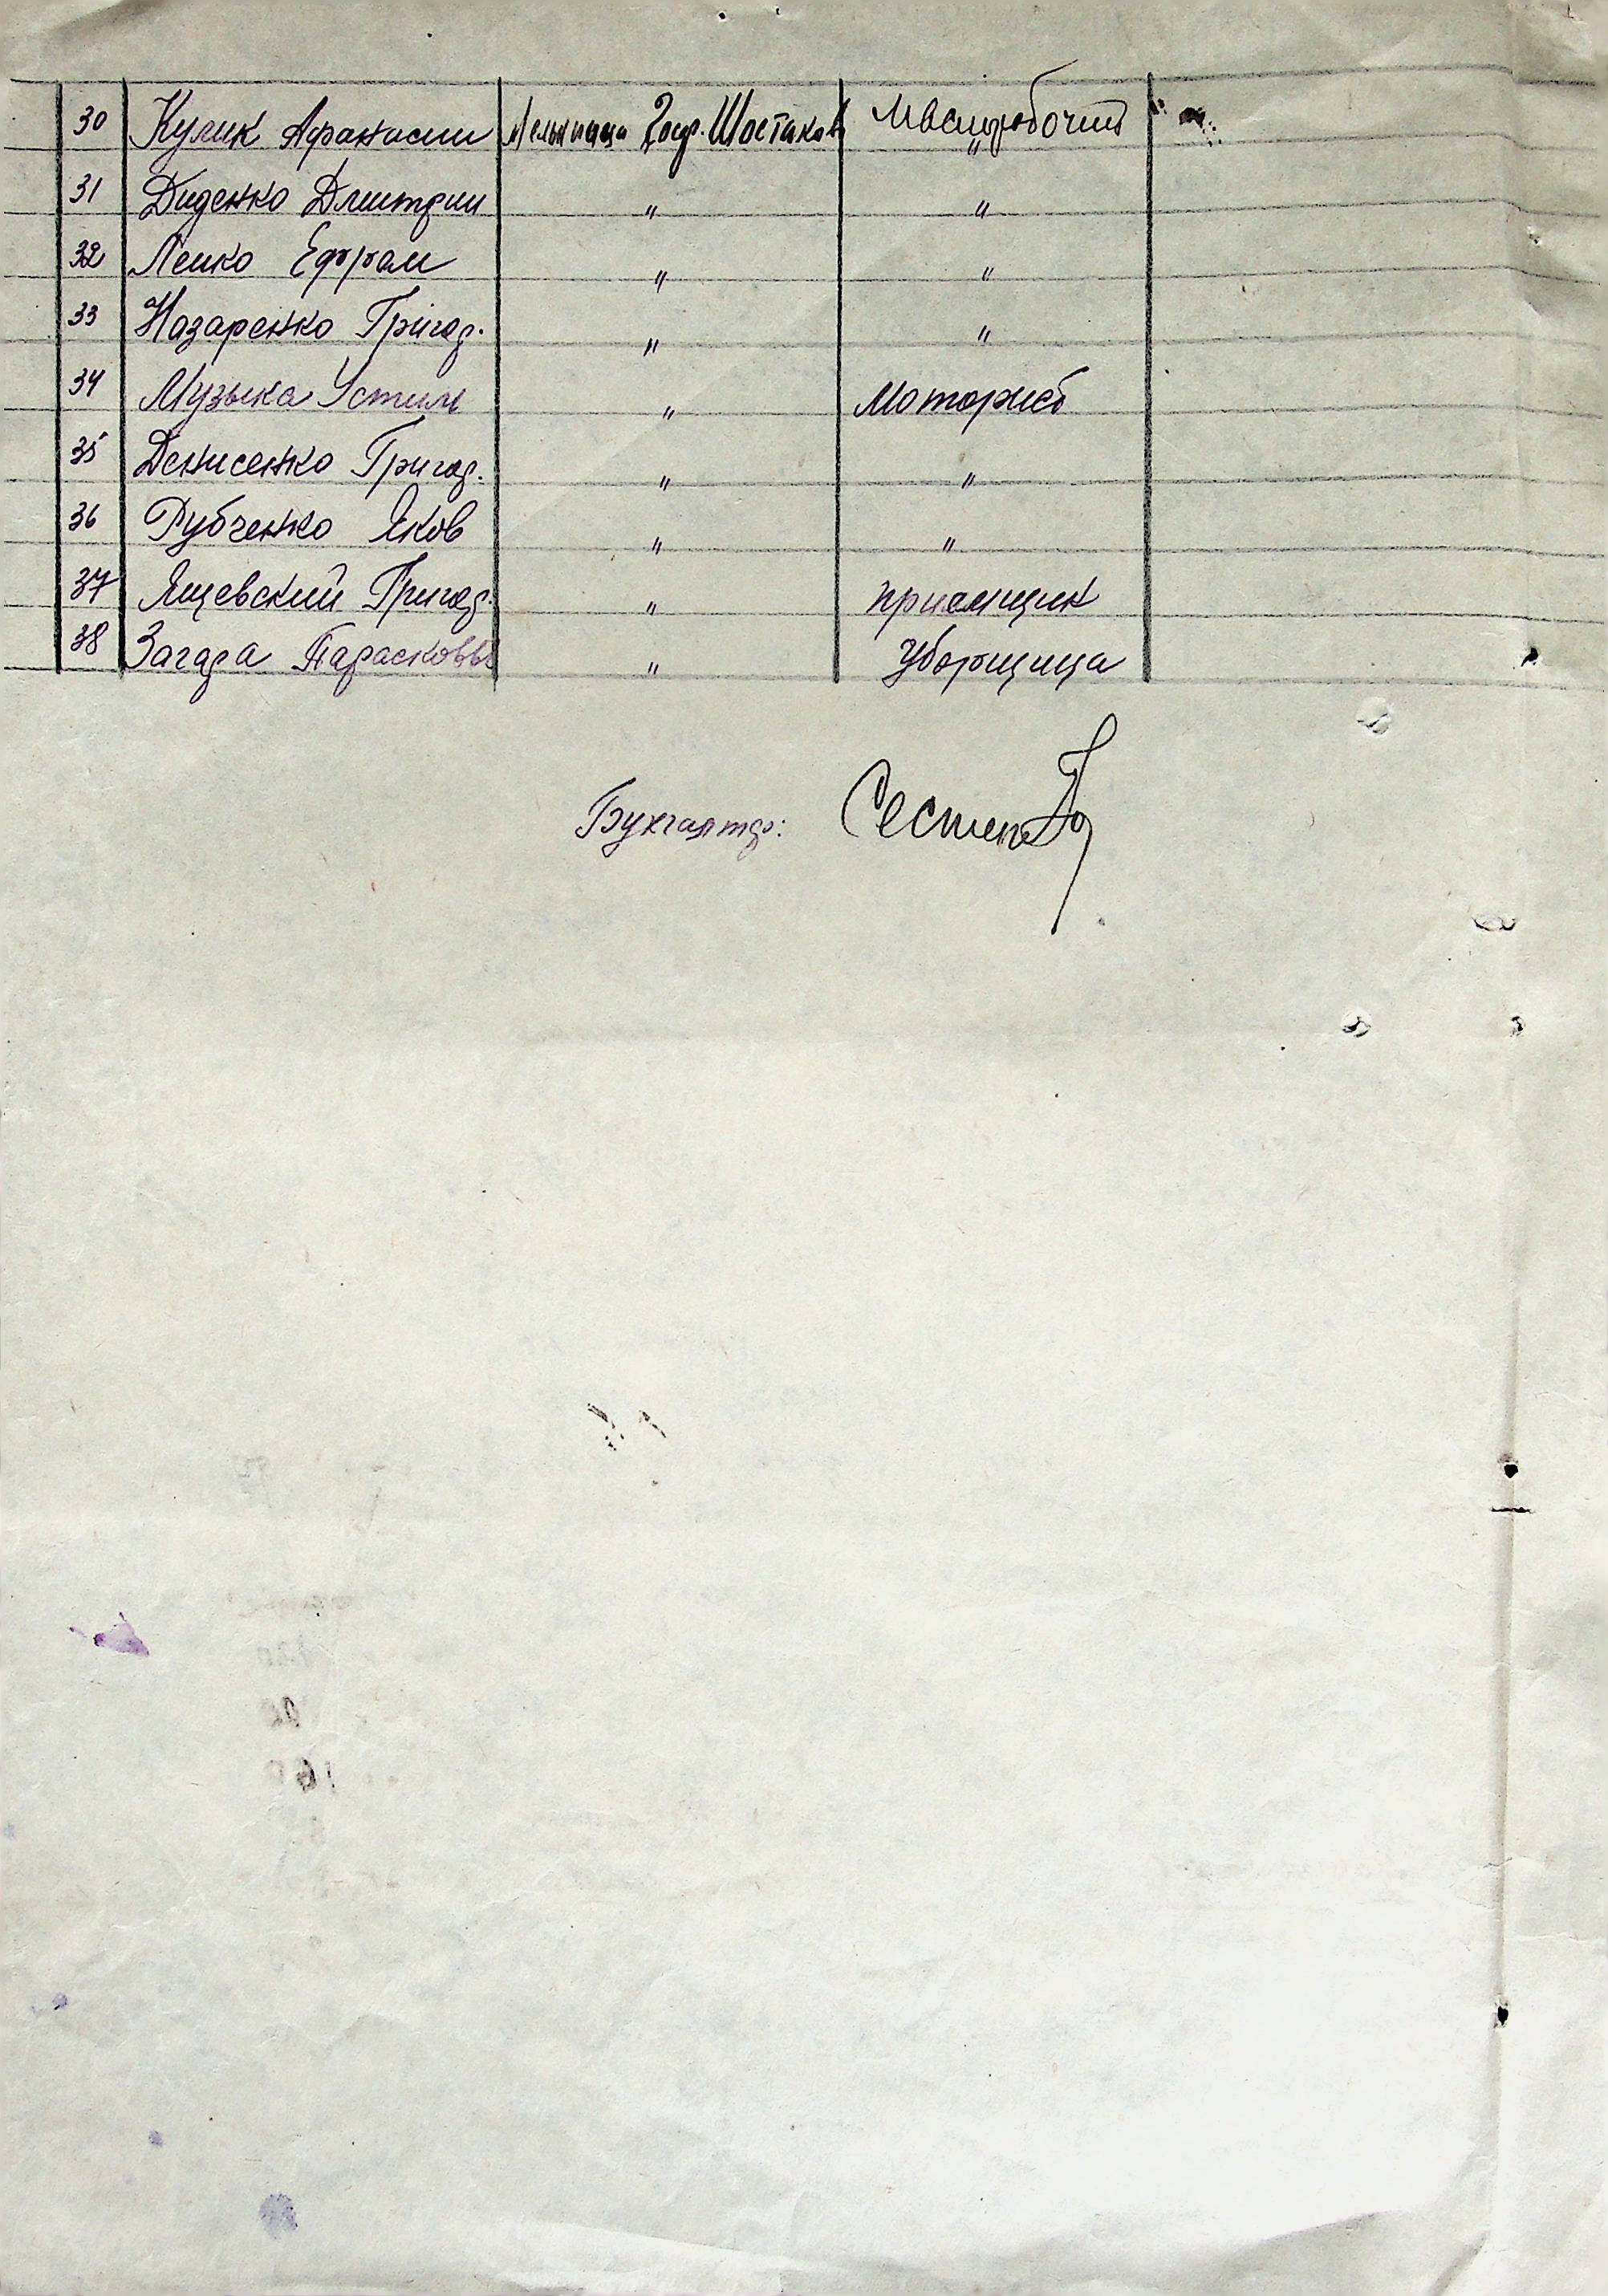 30 Кулик Афанасии Мельница Госуд. Шостаков
31 Диденко Дмитрии " "
32 Лейко Ефрам " "
33 Назаренко Грігор. " "
34 Музыка Устин " Моторист
35 Денисенко Григор. " "
36 Рубченко Яков " "
37 Ящевский Григор. " приемщик
38 Загара Парасковья " Уборщица
Бухгалтер: